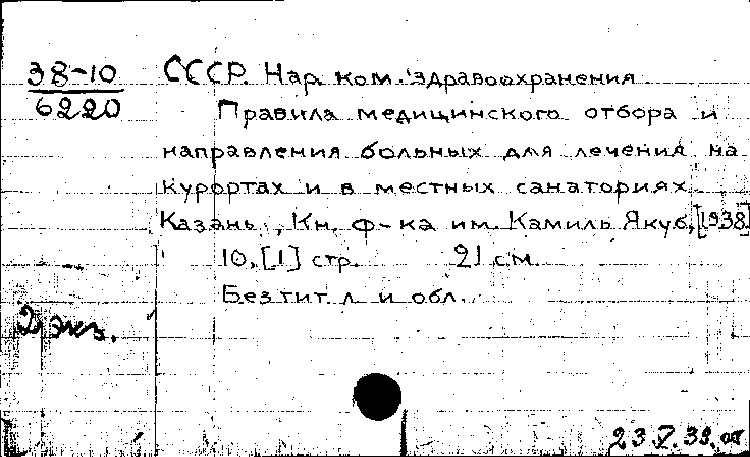 38-10
6220
СССР. Нар. ком. здравоохранения
Правила медицинского отбора и
направления больных для лечения на
курортах и в местных санаториях
Казань, Кн. ф-ка им. Камиль Якуб, [1938]
10, [1] стр. 21 см.
Без тит л и обл.
2 экз.
23.V.39.